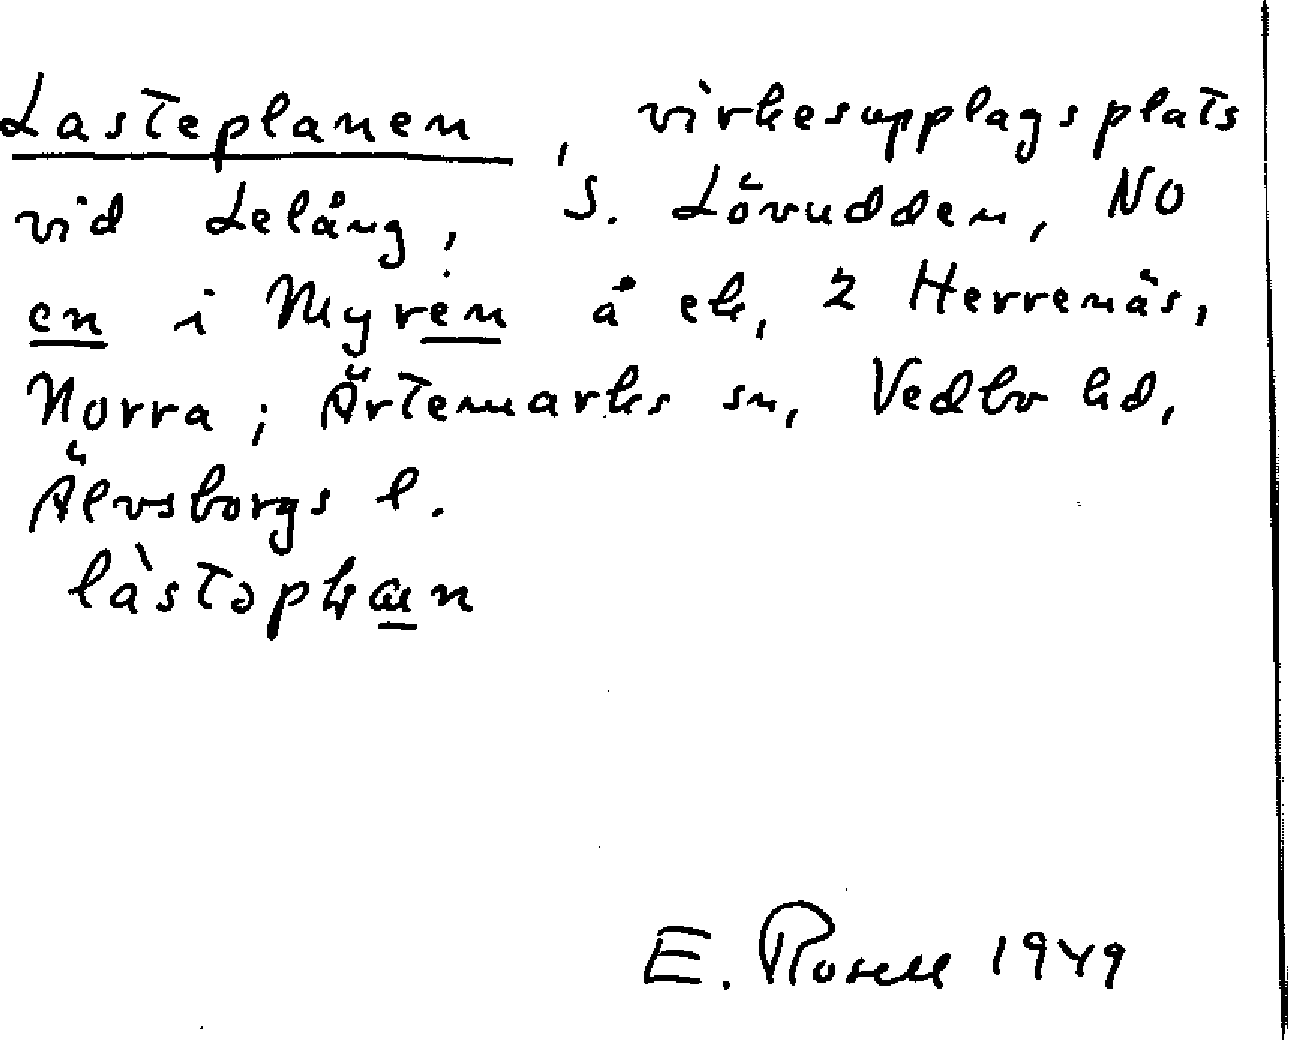 Lasteplanen, virkesupplagsplats
vid Lelång, S. Lövudden, NO
en i Myren å ek, 2 Herrenäs,
Norra; Ärtemarks sn, Vedbo hd,
Älvsborgs l.
E. Rosell 1949